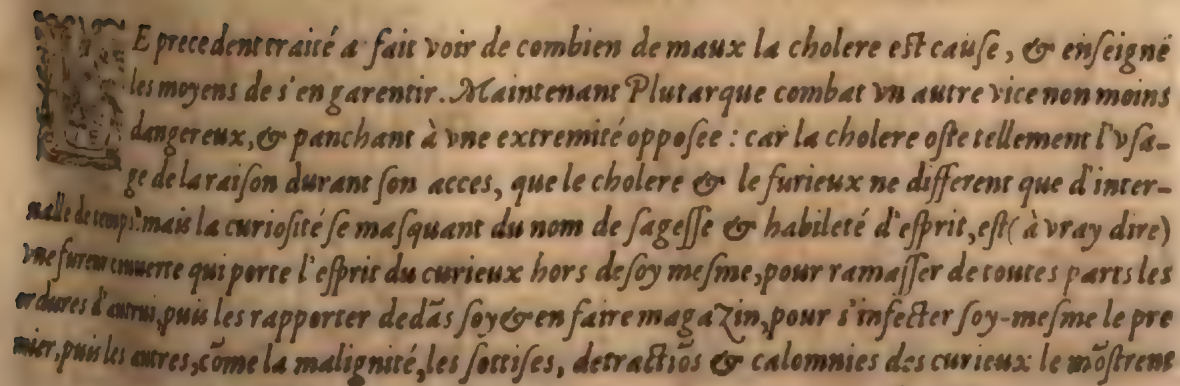 LE precedent traité a fait voir de combien de maux la cholere est cause, & enseigné
les moyens de s'en garentir. Maintenant Plutarque combat vn autre vice non moins
dangereux, & panchant à vne extremité opposee : car la cholere oste tellement l'vsa-
ge de la raison durant son acces, que le cholere & le furieux ne different que d'inter-
ualle de temps: mais la curiosité se masquant du nom de sagesse & habileté d'esprit, est (à vray dire)
vne fureur couuerte qui porte l'esprit du curieux hors de soy mesme, pour ramasser de toutes parts les
ordures d'autrui, puis les rapporter dedãs soy & en faire magazin, pour s'infecter soy-mesme le pre
mier, puis les autres, cõme la malignité, les sottises, detractiõs & calomnies des curieux le mõstrent